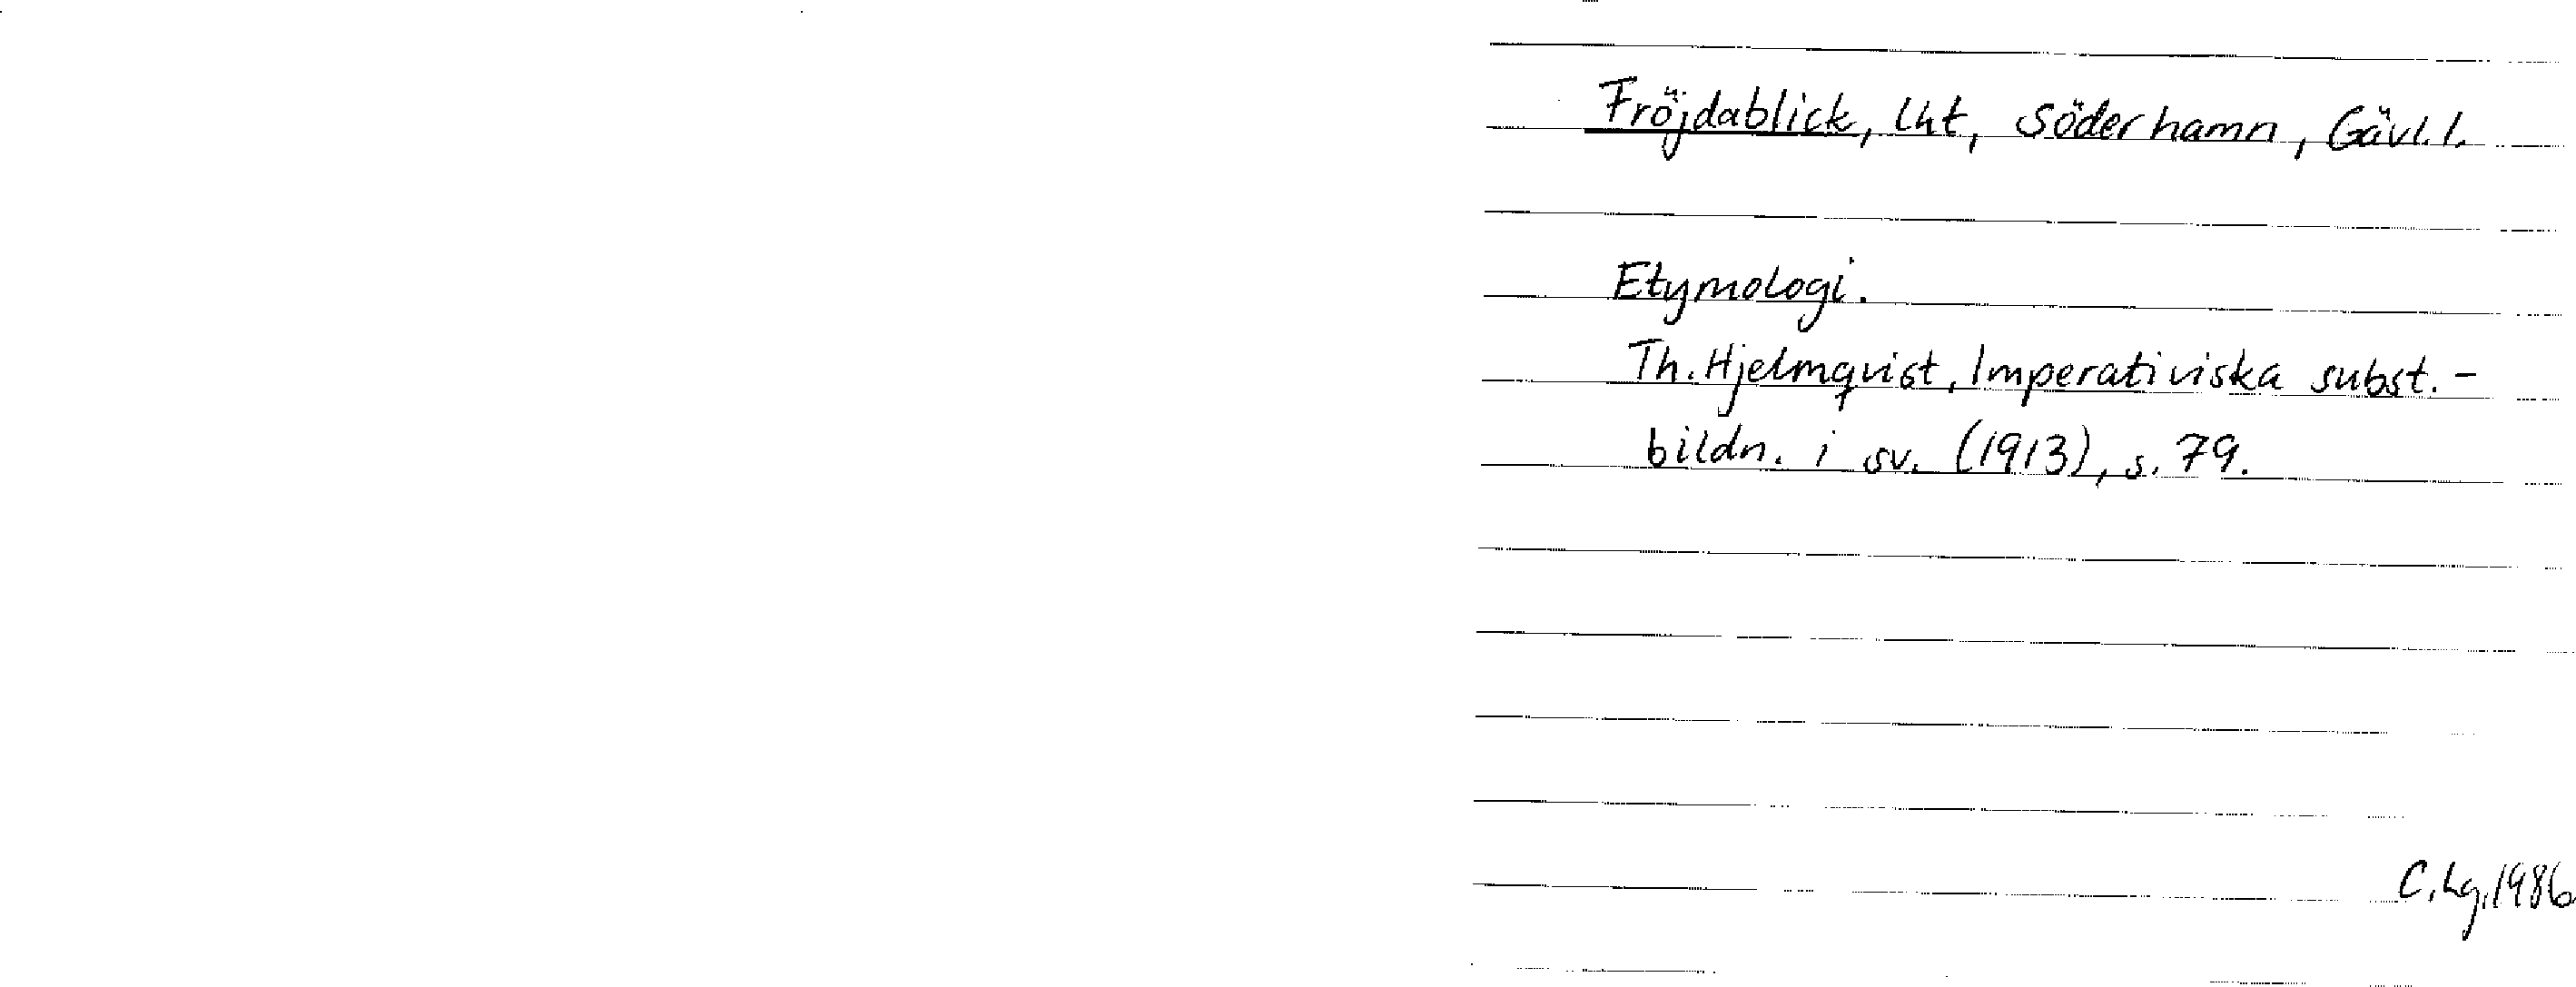 Fröjdablick, lht, Söderhamn, Gävl.l.
Etymologi.
Th. Hjelmqvist, Imperativiska subst.-
bildn. i sv. (1913), s. 79.
C.Lg.1986.